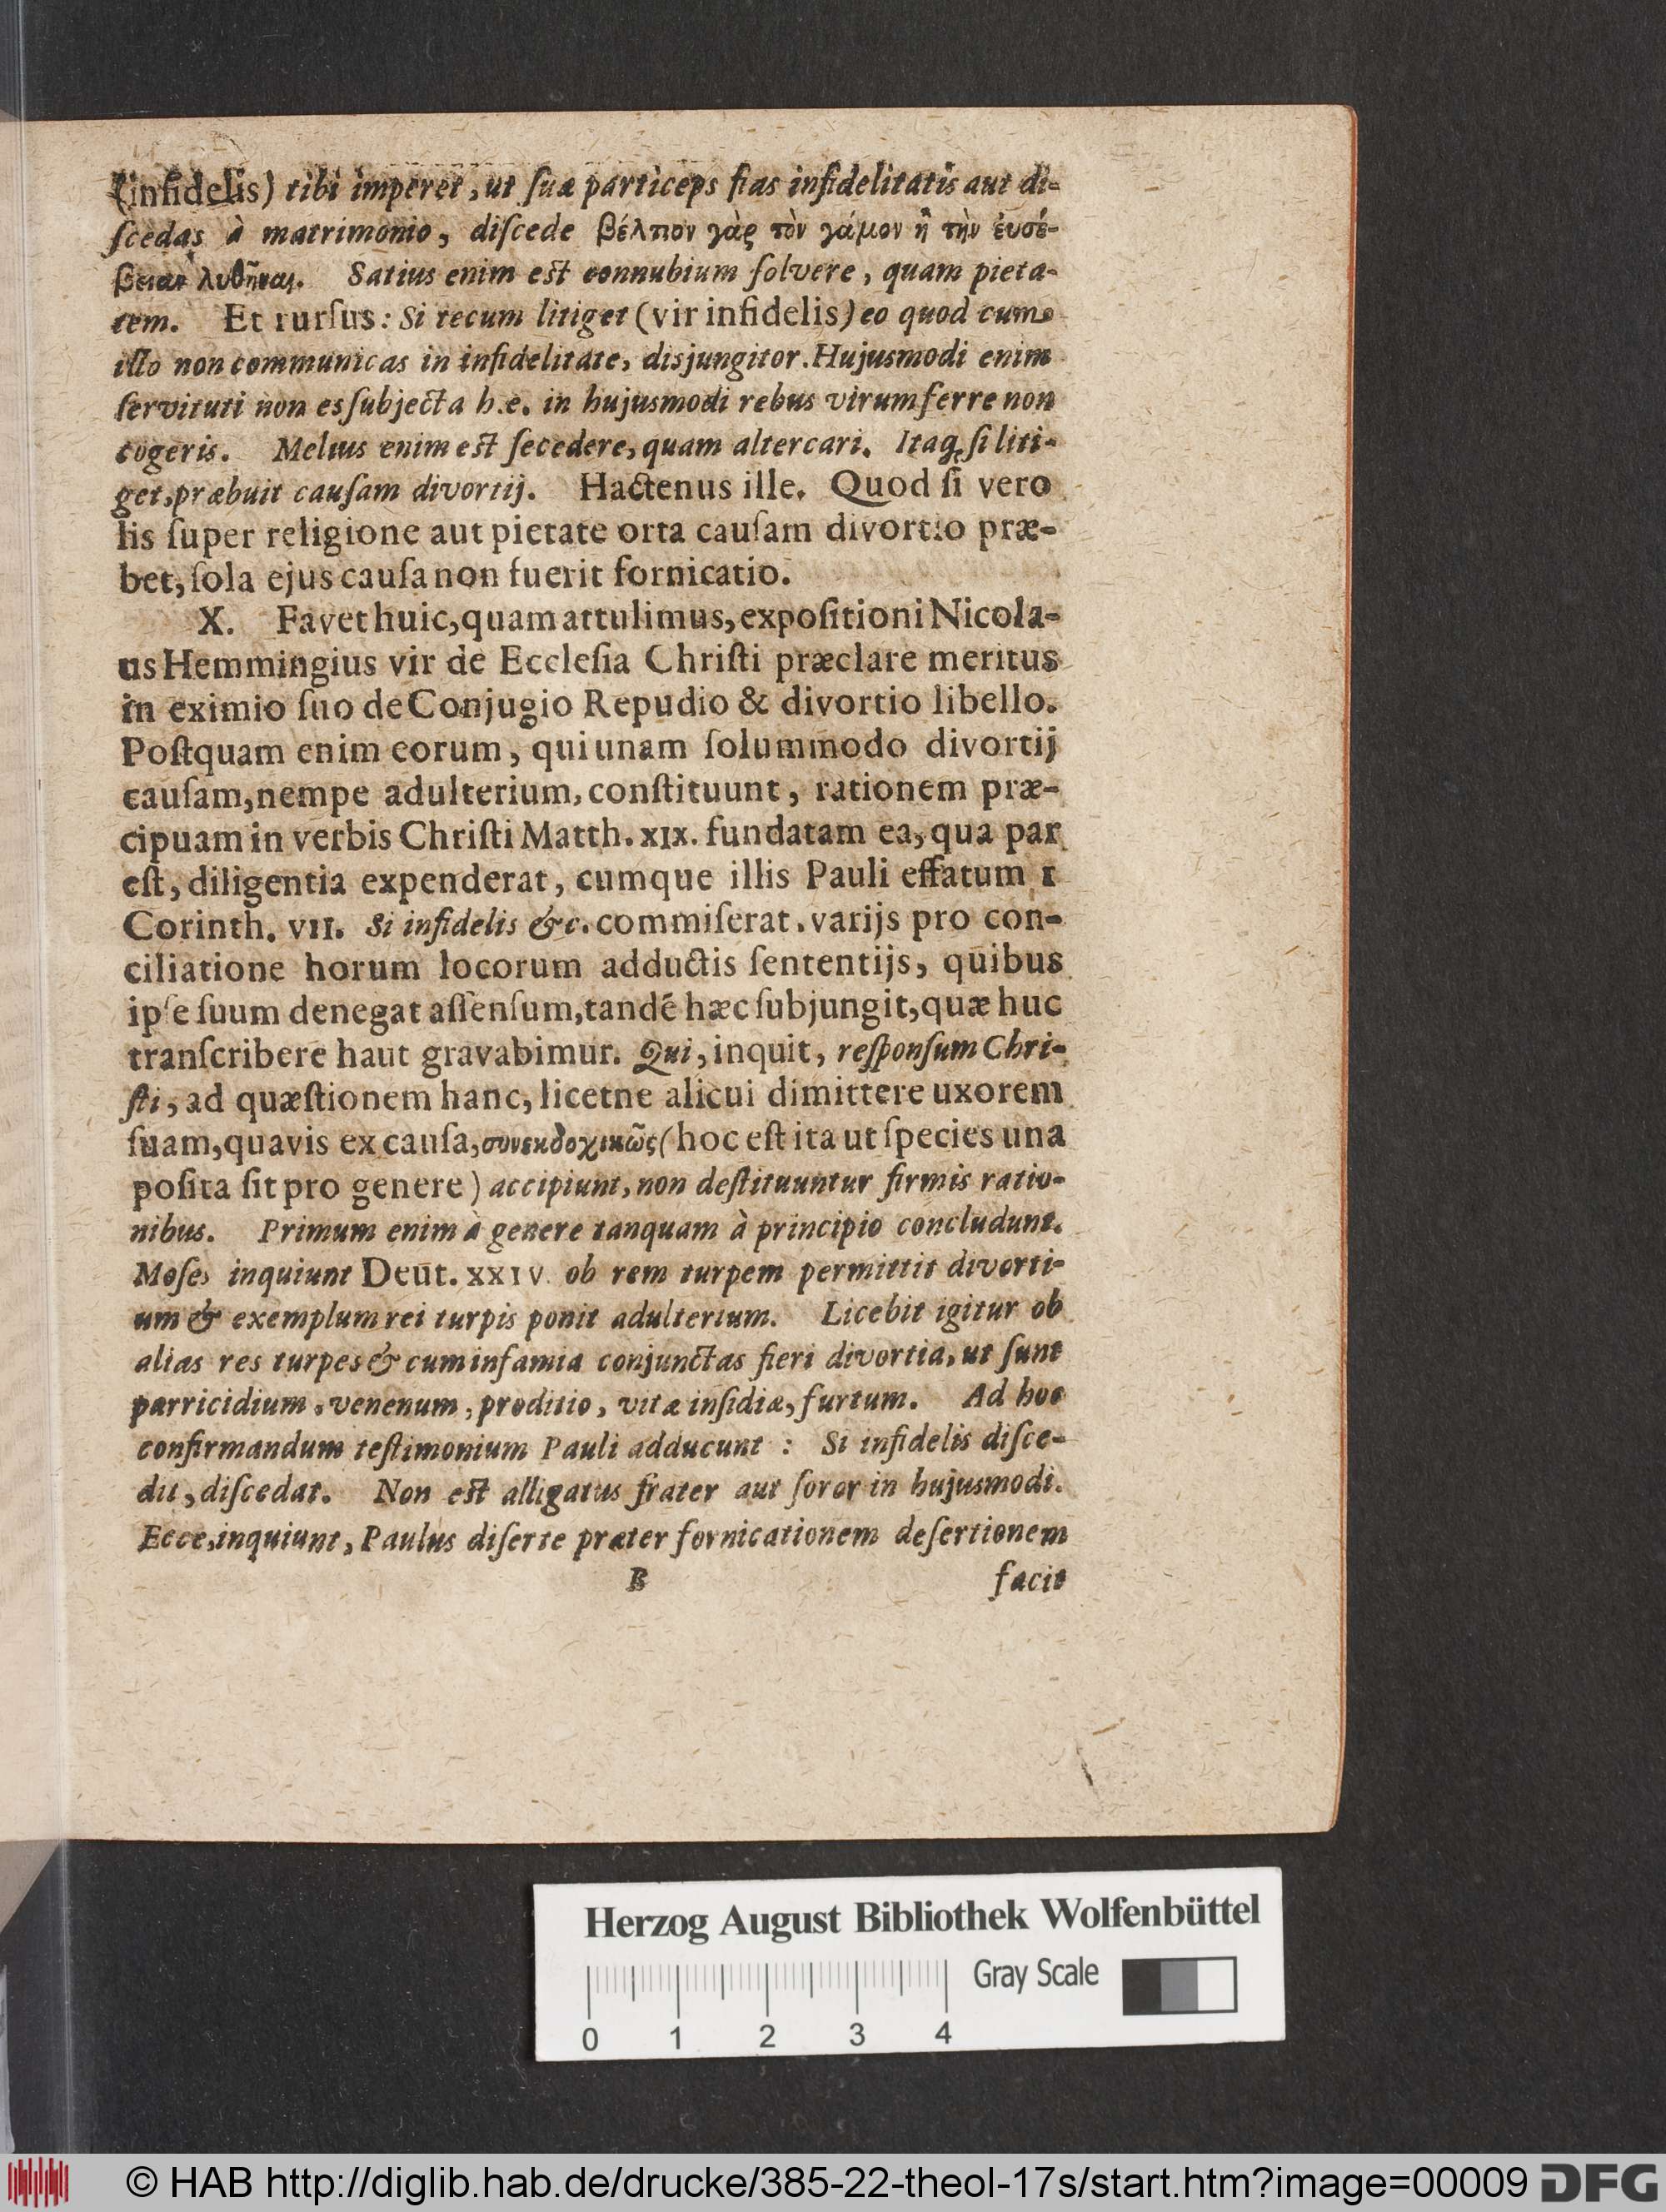 (infidelis) tibi imperet, ut ſuæ particeps fias infidelitatis aut di-
ſcedas à matrimonio, diſcede βέλτιον γὰρ τὸν γάμον ἢ τὴν ἐυσέ-
βειαν λυθῆναι. Satius enim est connubium ſolvere, quam pieta-
tem. Et rurſus: Si tecum litiget (vir infidelis) eo quod cum
illo non communicas in infidelitate, disjungitor. Hujusmodi enim
ſervituti non es ſubjecta h.e. in hujusmodi rebus virum ferre non
cogeris. Melius enim est ſecedere, quam altercari. Itaq; ſi liti-
get, præbuit cauſam divortij. Hactenus ille. Quod ſi vero
lis ſuper religione aut pietate orta cauſam divortio præ-
bet, ſola ejus cauſa non fuerit fornicatio.
X. Favet huic, quam attulimus, expoſitioni Nicola-
us Hemmingius vir de Eccleſia Chriſti præclare meritus
in eximio ſuo de Conjugio Repudio & divortio libello.
Poſtquam enim eorum, qui unam ſolummodo divortij
cauſam, nempe adulterium, conſtituunt, rationem præ-
cipuam in verbis Chriſti Matth. XIX. fundatam ea, qua par
eſt, diligentia expenderat, cumque illis Pauli effatum 1
Corinth. VII. Si infidelis &c. commiſerat, varijs pro con-
ciliatione horum locorum adductis ſententijs, quibus
ipſe ſuum denegat aſſenſum, tandē hæc ſubjungit, quæ huc
tranſcribere haut gravabimur. Qui, inquit, reſponſum Chri-
ſti, ad quæſtionem hanc, licetne alicui dimittere uxorem
ſuam, quavis ex cauſa, συνεκδοχικῶς (hoc eſt ita ut ſpecies una
poſita ſit pro genere) accipiunt, non deſtituuntur firmis ratio-
nibus. Primum enim à genere tanquam à principio concludunt.
Moſes inquiunt Deut. XXIV. ob rem turpem permittit divorti-
um & exemplum rei turpis ponit adulterium. Licebit igitur ob
alias res turpes & cum infamia conjunctas fieri divortia, ut ſunt
parricidium, venenum, proditio, vitæ inſidiæ, furtum. Ad hoc
confirmandum teſtimonium Pauli adducunt: Si infidelis diſce-
dit, diſcedat. Non est alligatus frater aut ſoror in hujusmodi.
Ecce, inquiunt, Paulus diſerte præter fornicationem deſertionem
B facit
Herzog August Bibliothek Wolfenbüttel
Gray Scale
0 1 2 3 4
© HAB http://diglib.hab.de/drucke/385-22-theol-17s/start.htm?image=00009 DFG